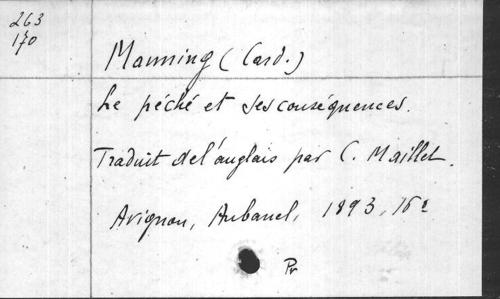 263
170
Manning (Card.)
Le péché et ses conséquences.
Traduit de l'anglais par C. Maillet.
Avignon, Aubanel, 1893, 16º
Pr